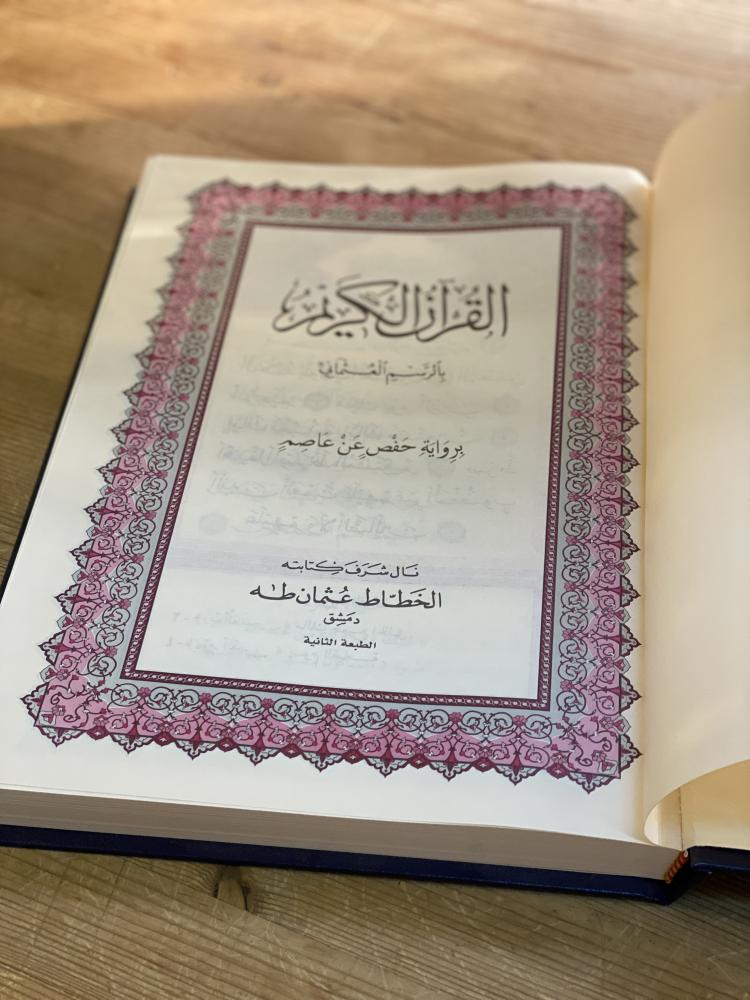 القُرآنُ الكَرِيمُ
بِالرَّسْمِ العُثْمَانِيّ
بِرِوَايَةِ حَفْصٍ عَنْ عَاصِمٍ
نَال شَرَفَ كِتابته
الخَطّاط عُثمان طٰه
دمَشِق
الطبعة الثانية